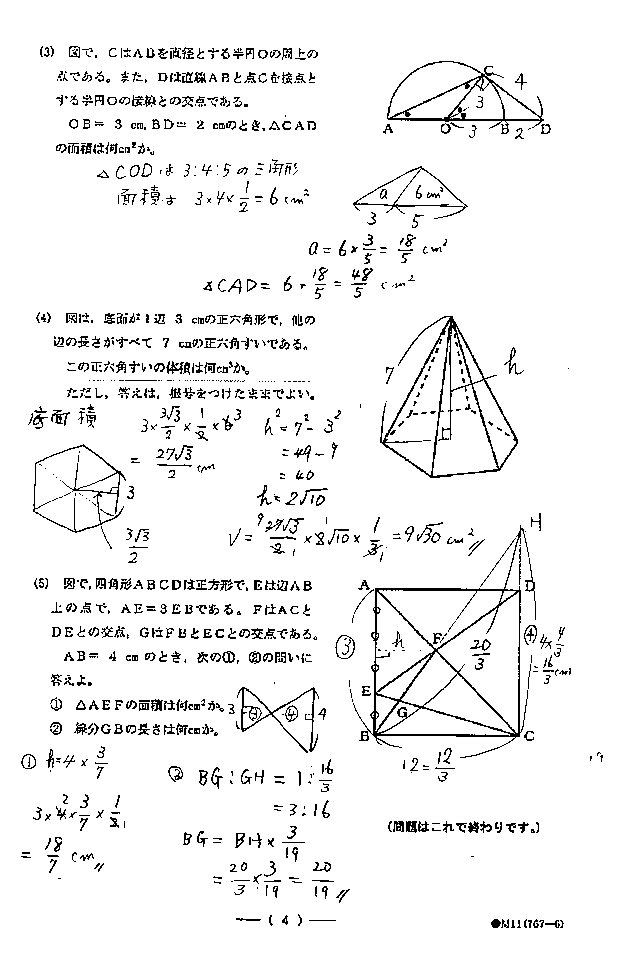 (3) 図で，CはABを直径とする半円Oの周上の
点である。また，Dは直線ABと点Cを接点と
する半円Oの接線との交点である。
OB＝ 3 cm, BD＝ 2 cmのとき，△CAD
の面積は何cm²か。
△COD は 3:4:5 の三角形
面積は 3×4×1/2=6 cm²
C
4
3
A
O
3
B
2
D
a
6cm²
3
5
a=6×3/5=18/5 cm²
△CAD= 6+18/5=48/5 cm²
(4) 図は，底面が1辺 3 cmの正六角形で，他の
辺の長さがすべて 7 cmの正六角すいである。
この正六角すいの体積は何cm³か。
ただし，答えは，根号をつけたままでよい。
7
h
底面積
3×3√3/2×1/2×6 3
=27√3/2 cm
h²=7²-3²
=49-9
=40
h=2√10
3
3√3/2
V=27√3/2×2√10×1/3=9√30 cm²
(5) 図で，四角形ABCDは正方形で，Eは辺AB
上の点で，AE＝3EBである。FはACと
DEとの交点，GはFBとECとの交点である。
AB＝ 4 cmのとき，次の①，②の問いに
答えよ。
① △AEFの面積は何cm²か。
② 線分GBの長さは何cmか。
3
4
H
A
D
③
h
F
20/3
④
4×4/3
=16/3(cm)
E
G
B
C
12=12/3
① h=4×3/7
3×4×3/7×1/2
=18/7 cm
② BG:GH=1:16/3
=3:16
BG=BH×3/19
=20/3×3/19=20/19
19
(問題はこれで終わりです。)
—( 4 )—
●M11(767—6)